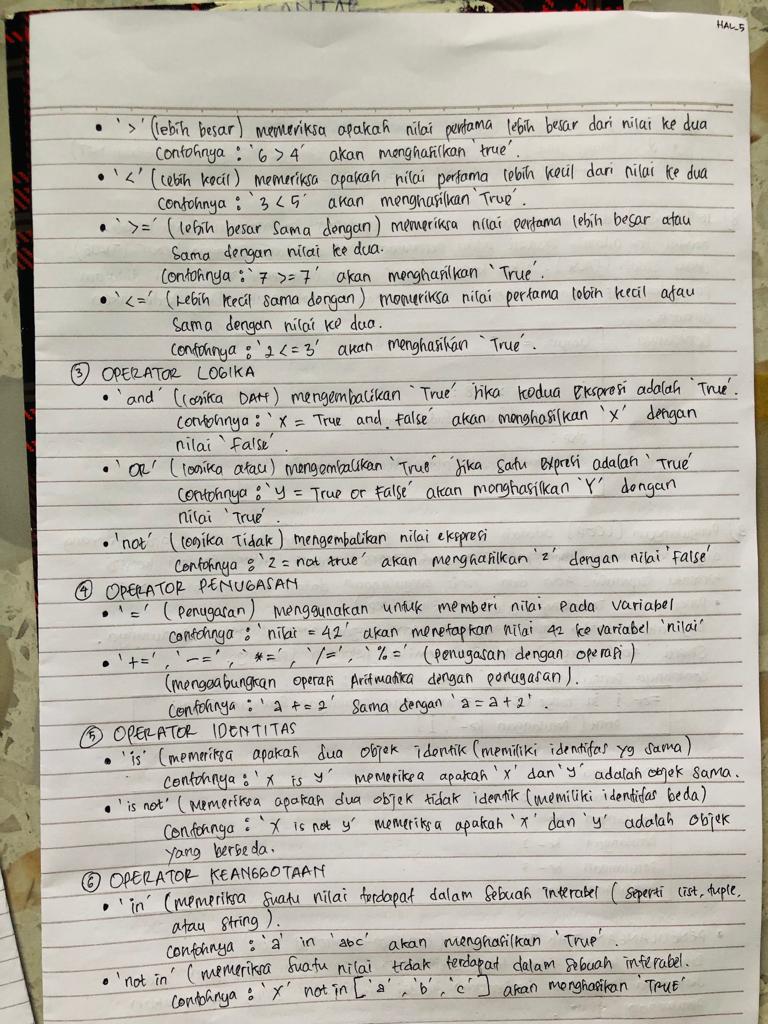 HAL_5
• '>' (lebih besar) memeriksa apakah nilai pertama lebih besar dari nilai ke dua
Contohnya : '6 > 4' akan menghasilkan 'true'.
• '<' (lebih kecil) memeriksa apakah nilai pertama lebih kecil dari nilai ke dua
Contohnya : '3 < 5' akan menghasilkan 'True'.
• '>=' (lebih besar sama dengan) memeriksa nilai pertama lebih besar atau
sama dengan nilai ke dua.
Contohnya : '7 >= 7' akan menghasilkan 'True'.
• '<=' (Lebih kecil sama dengan) memeriksa nilai pertama lebih kecil atau
sama dengan nilai ke dua.
Contohnya : '2 <= 3' akan menghasilkan 'True'.
③ OPERATOR LOGIKA
• 'and' (logika DAN) mengembalikan 'True' jika kedua Ekspresi adalah 'True'.
contohnya : 'X = True and False' akan menghasilkan 'X' dengan
nilai 'False'.
• 'OR' (logika atau) mengembalikan 'True' jika satu expresi adalah 'True'
Contohnya : 'y = True or False' akan menghasilkan 'Y' dengan
nilai 'True'.
• 'not' (logika Tidak) mengembalikan nilai ekspresi
Contohnya : 'z = not true' akan menghasilkan 'z' dengan nilai 'False'
④ OPERATOR PENUGASAN
• '=' (Penugasan) menggunakan untuk memberi nilai pada variabel
Contohnya : 'nilai = 42' akan menetapkan nilai 42 ke variabel 'nilai'
• '+=', '-=', '*=', '/=', '%=' (penugasan dengan operasi)
(menggabungkan operasi Aritmatika dengan penugasan).
Contohnya : 'a += 2' sama dengan 'a = a + 2'.
⑤ OPERATOR IDENTITAS
• 'is' (memeriksa apakah dua objek identik (memiliki identitas yg sama)
Contohnya : 'x is y' memeriksa apakah 'x' dan 'y' adalah objek sama.
• 'is not' (memeriksa apakah dua objek tidak identik (memiliki identitas beda)
Contohnya : 'x is not y' memeriksa apakah 'x' dan 'y' adalah objek
yang berbeda.
⑥ OPERATOR KEANGGOTAAN
• 'in' (memeriksa suatu nilai terdapat dalam sebuah interabel (seperti list, tuple,
atau string).
Contohnya : 'a' in 'abc' akan menghasilkan 'True'.
• 'not in' (memeriksa suatu nilai tidak terdapat dalam sebuah interabel.
Contohnya : 'x' not in ['a', 'b', 'c'] akan menghasilkan 'TRUE'